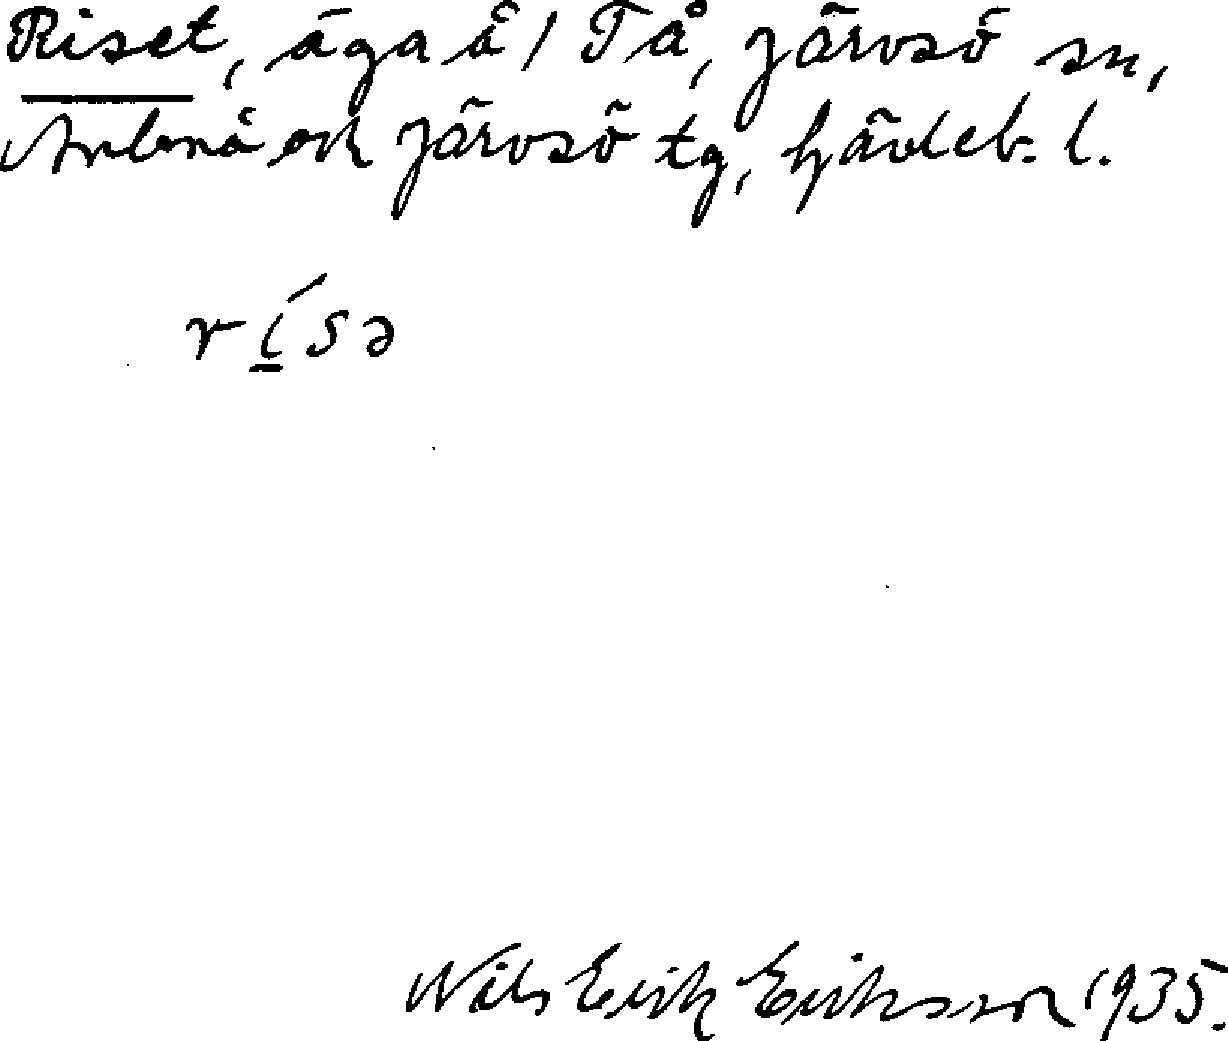 Riset, äga å 1 Tå, Järvsö sn,
Arbrå och Järvsö tg, Gävleb. l.
rísə
Nils Erik Eriksson 1935.